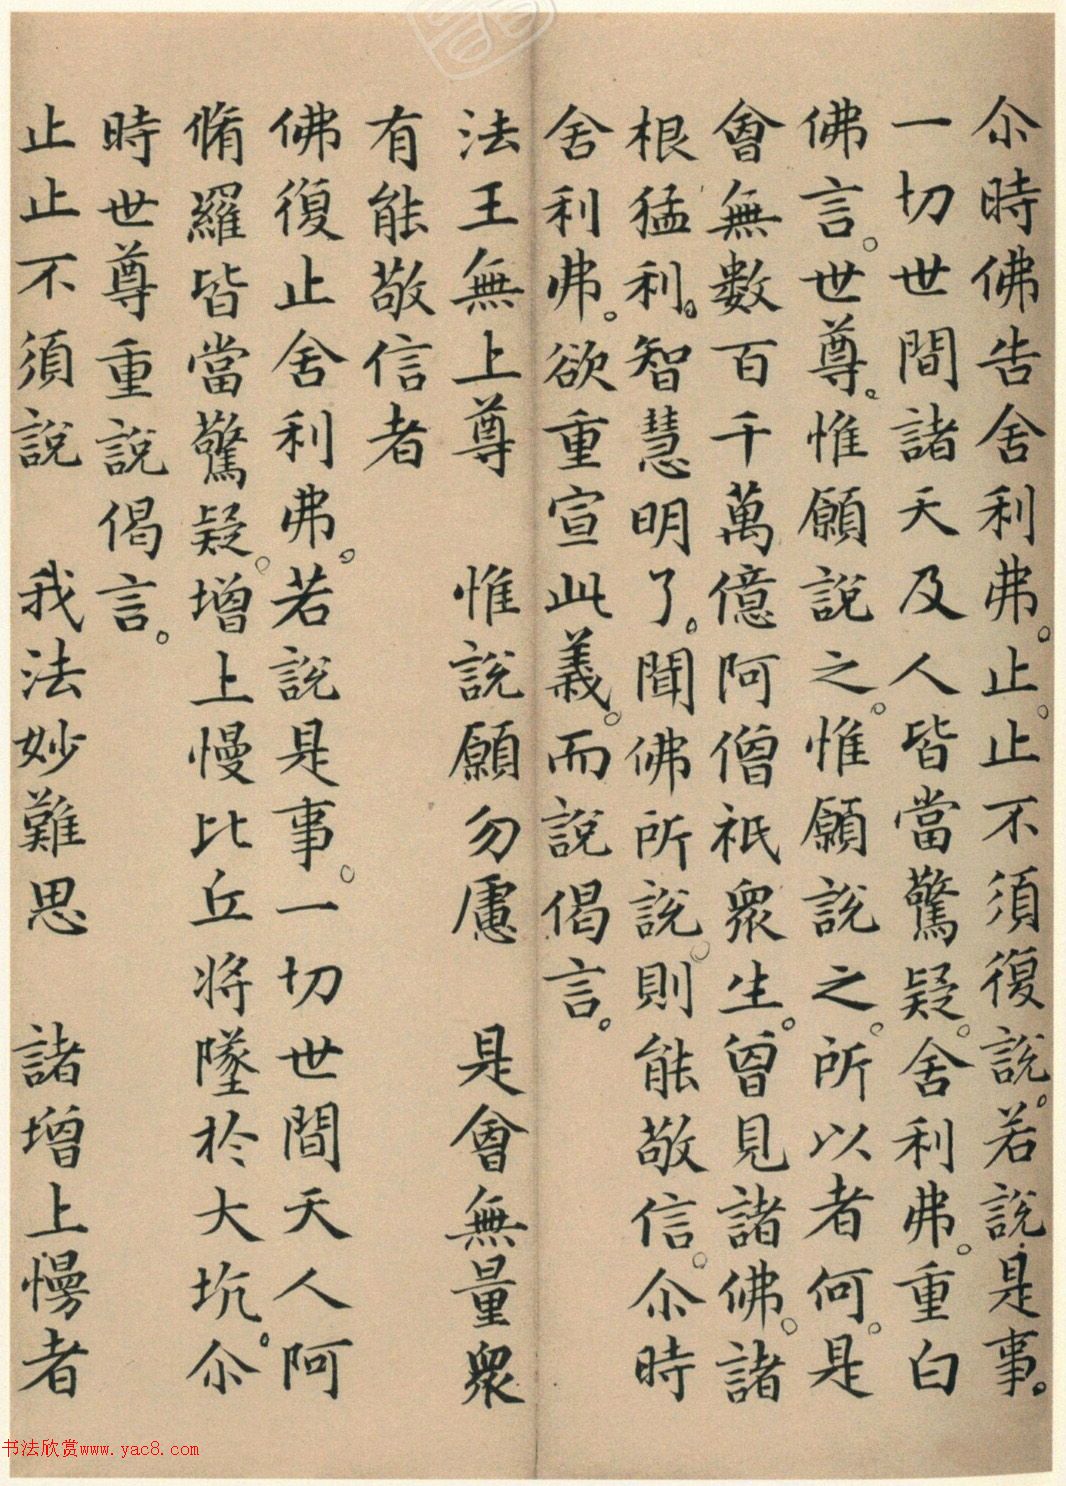 尒時佛告舍利弗。止。止不須復說。若說是事。
一切世間諸天及人皆當驚疑。舍利弗。重白
佛言。世尊。惟願說之。惟願說之。所以者何。是
會無數百千萬億阿僧祇眾生。曾見諸佛。諸
根猛利。智慧明了。聞佛所說。則能敬信。尒時
舍利弗。欲重宣此義。而說偈言。
法王無上尊　惟說願勿慮　是會無量眾
有能敬信者
佛復止舍利弗。若說是事。一切世間天人阿
脩羅皆當驚疑。增上慢比丘將墜於大坑。尒
時世尊重說偈言。
止止不須說　我法妙難思　諸增上慢者
书法欣赏www.yac8.com